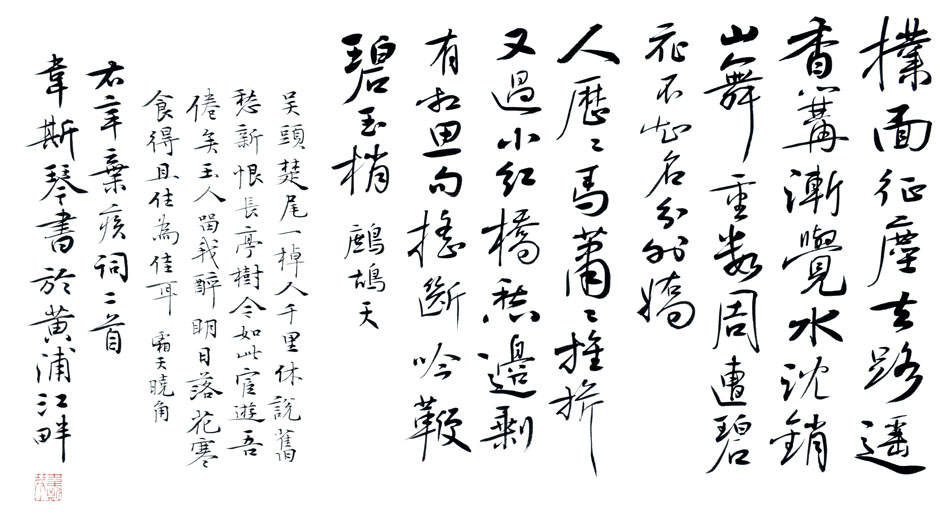 撲面征塵去路遥
香篝漸覺水沈銷
山無重数周遭碧
花不知名分外嬌
人歷〻馬蕭〻旌旂
又過小紅橋愁邊剩
有相思句搖斷吟鞭
碧玉梢 鷓鴣天
吴頭楚尾一棹人千里休説舊
愁新恨長亭樹今如此宦遊吾
倦矣玉人留我醉明日落花寒
食得且住為佳耳 霜天曉角
右辛棄疾詞二首
韋斯琴書於黄浦江畔